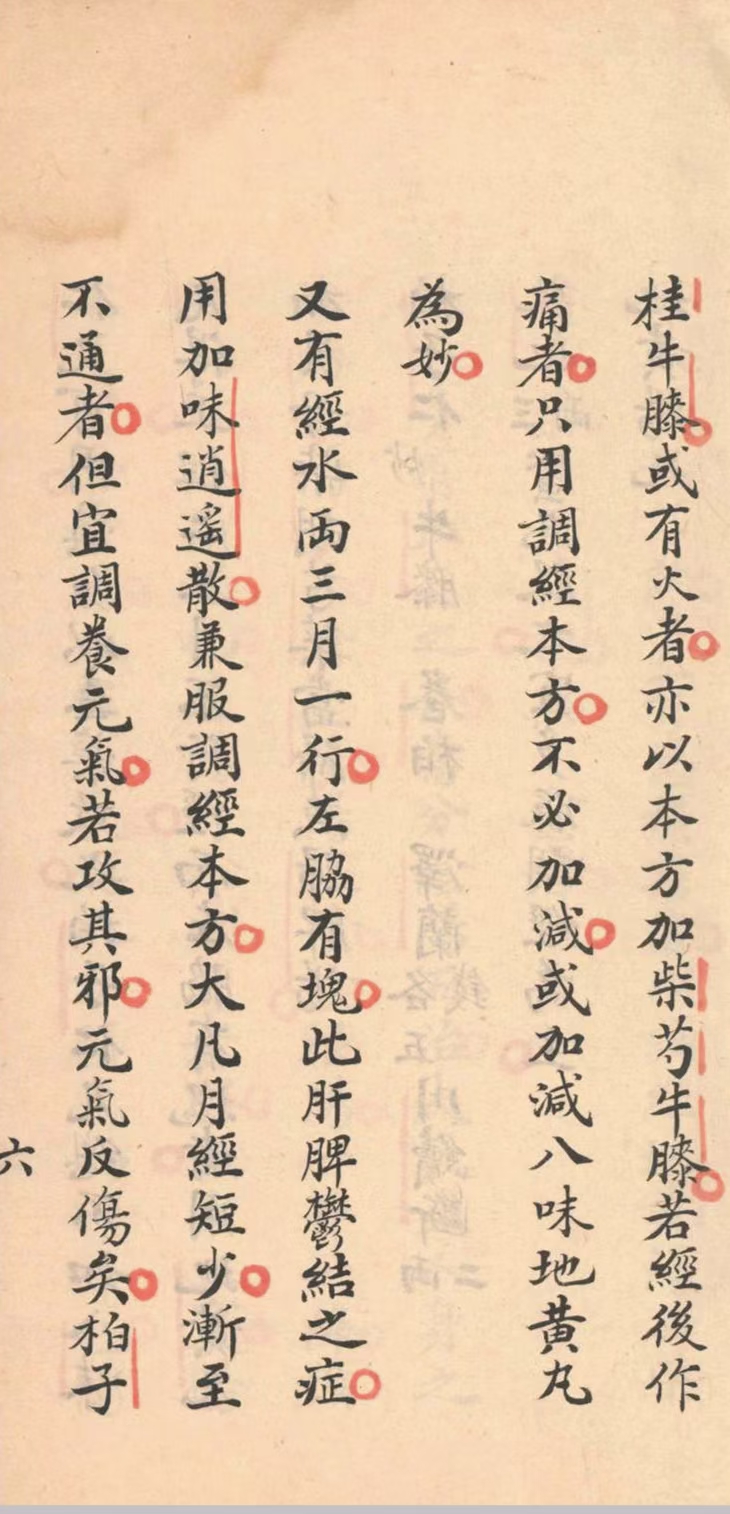 桂牛膝或有火者亦以本方加柴芍牛膝若經後作
痛者只用調經本方不必加減或加減八味地黃丸
為妙
又有經水両三月一行左脇有塊此肝脾鬱結之症
用加味逍遥散兼服調經本方大凡月經短少漸至
不通者但宜調養元氣若攻其邪元氣反傷矣柏子
六